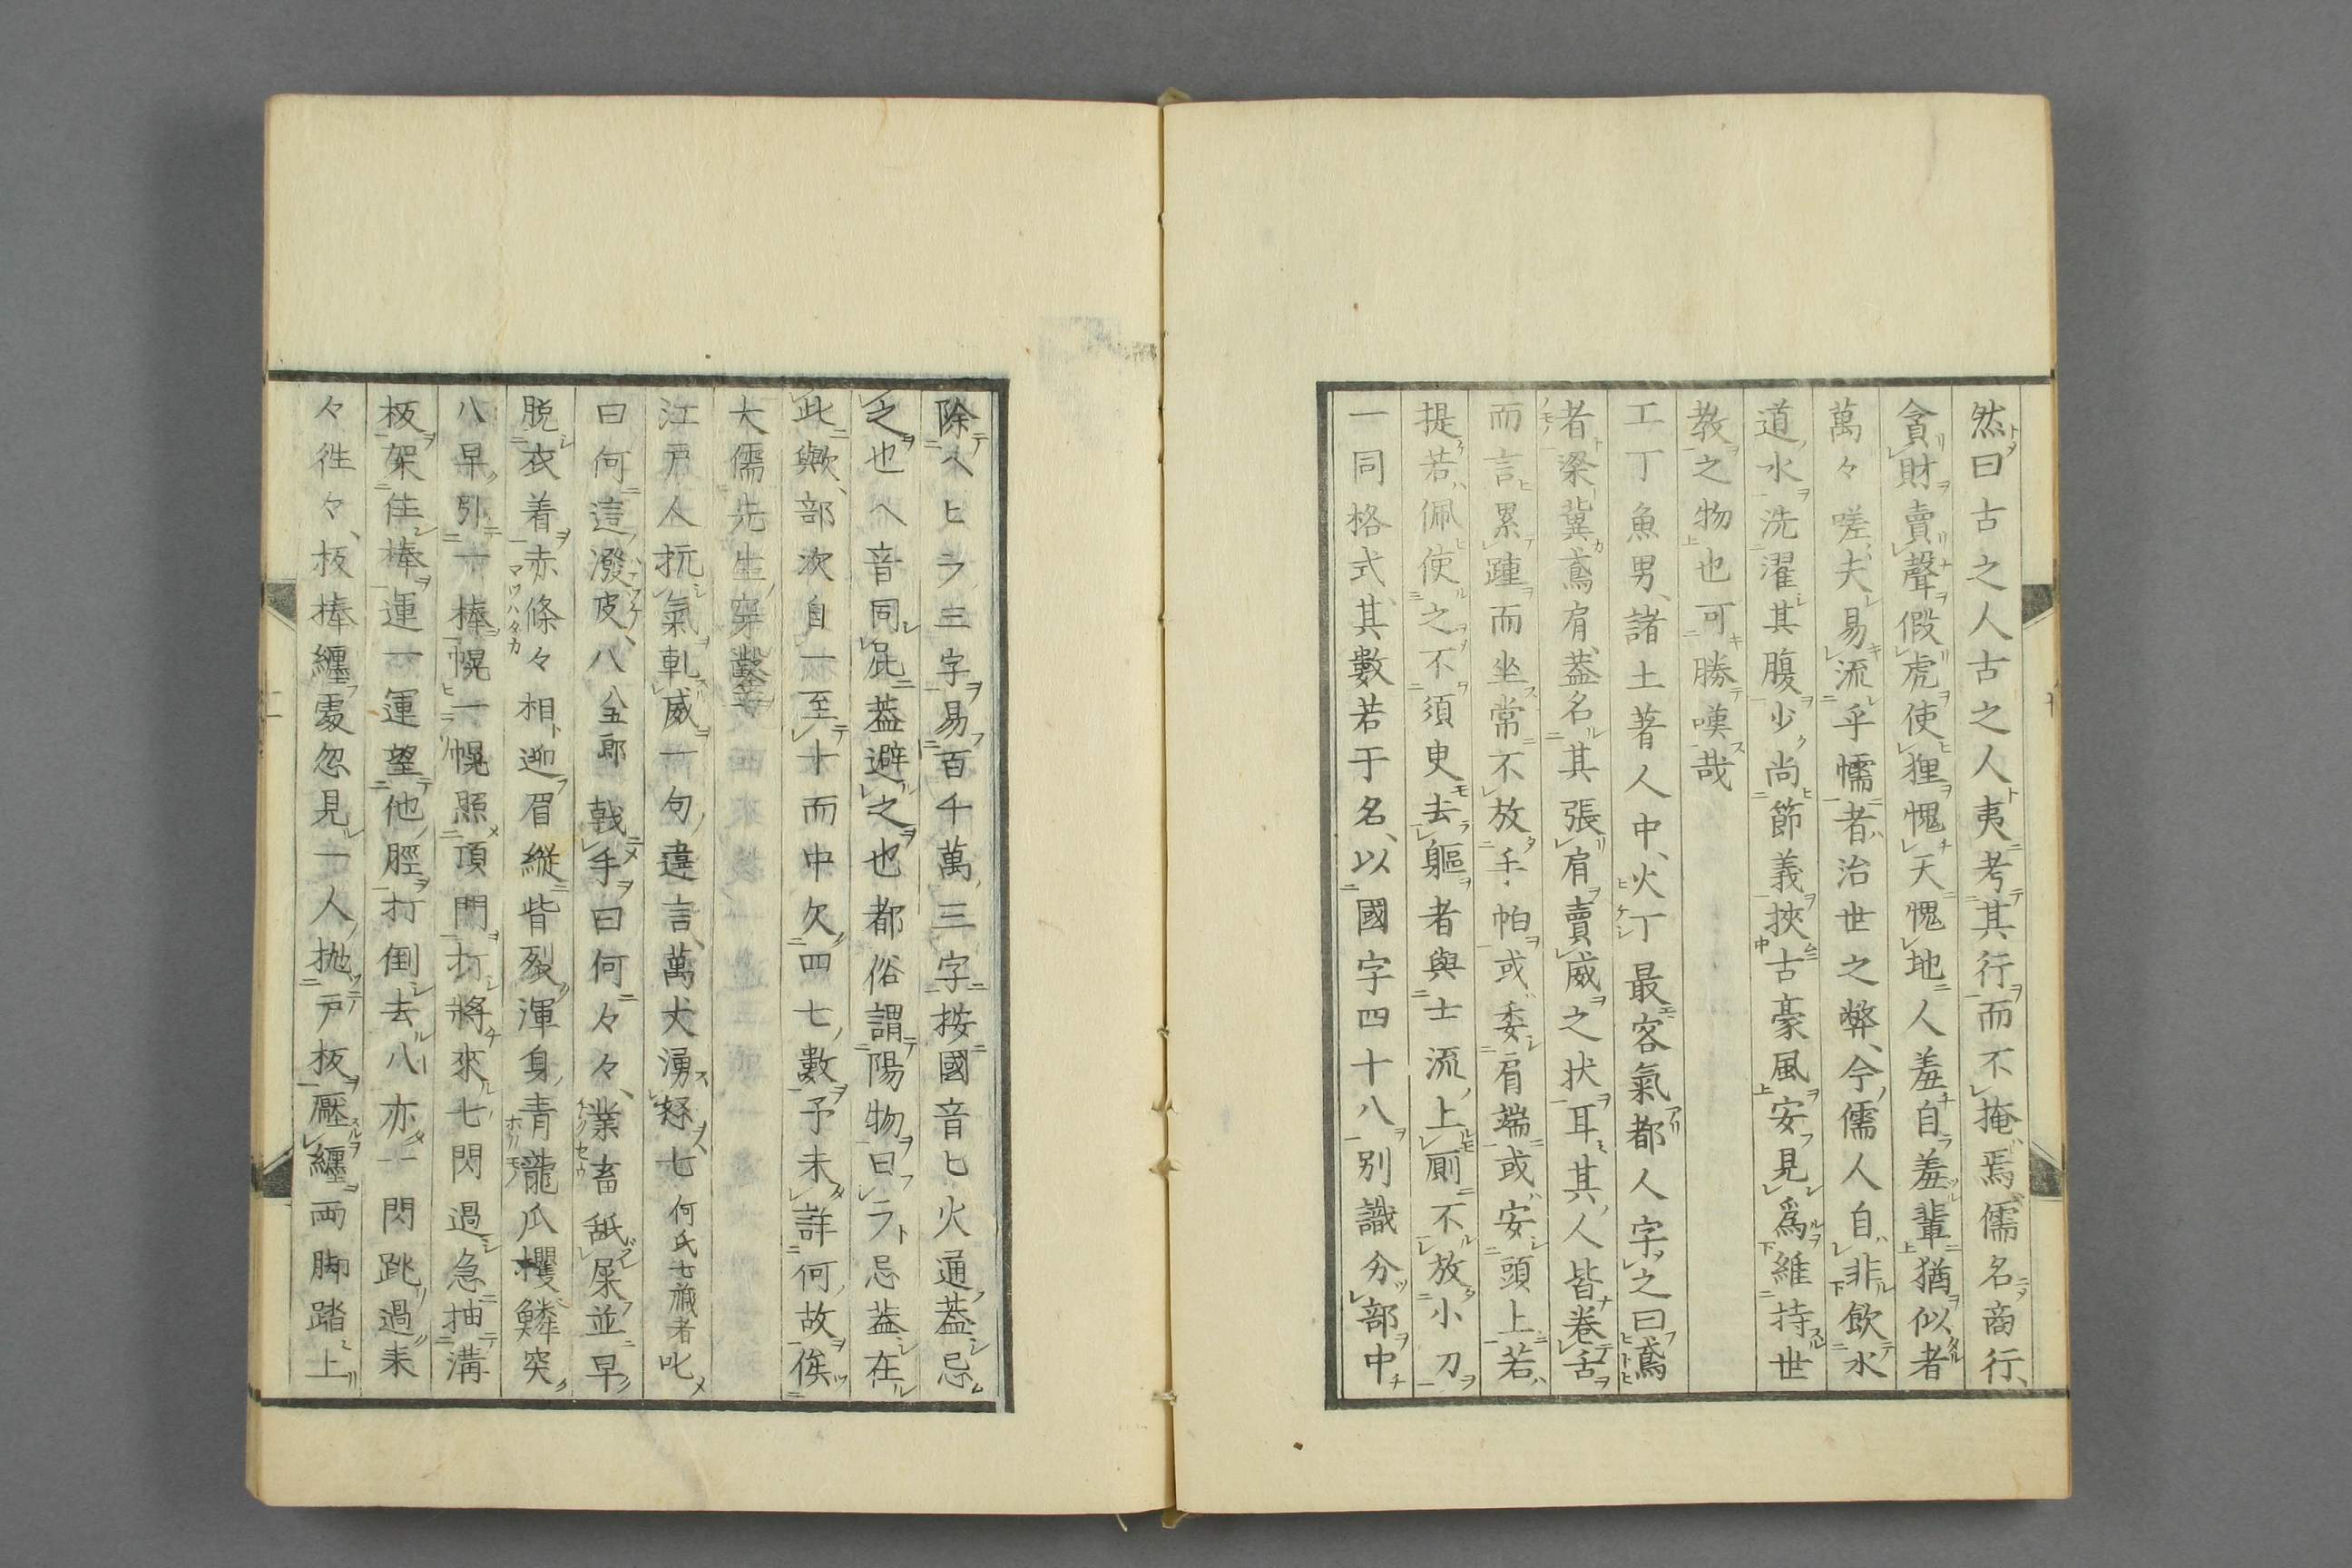 然曰古之人古之人夷考其行而不掩焉儒名商行、
貪財賣聲假虎使狸愧天愧地人羞自羞輩猶似者
萬々嗟夫易流乎懦者治世之弊、今儒人自非飲水
道水洗濯其腹少尚節義挾古豪風安見爲維持世
教之物也可勝嘆哉
工丁魚男、諸土著人中、火丁最客氣都人字之曰鳶
者梁冀鳶肩、蓋名其張肩賣威之状耳其人皆卷舌
而言累踵而坐常不放手帕或委肩端或安頭上若
提若佩使之不須臾去軀者與士流上厠不放小刀
一同格式、其數若于名、以國字四十八別識分部中
除ヘヒラ三字易百千萬三字按國音ヒ火通蓋忌
之也ヘ音同屁蓋避之也都俗謂陽物曰ラ忌蓋在
此歟、部次自一至十而中欠四七數予未詳何故俟
大儒先生穿鑿
江戸人抗氣軋威一句違言、萬犬湧怒七何氏七藏者叱
曰何這潑皮、八八五郎戟手曰何々々、業畜舐屎並早
脱衣着赤條々相迎眉縱眥裂渾身青龍瓜攫鱗突
八早引一棒幌一幌照頂門打將來七閃過急抽溝
板架住棒運一運望他脛打倒去八亦一閃跳過来
々徃々、板棒纏處忽見一人抛戸板壓纏両脚踏上